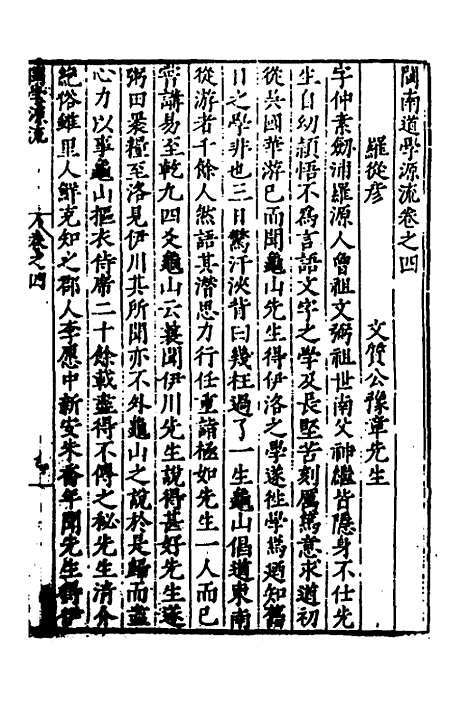 閩南道學源流卷之四
羅從彥　文質公豫章先生
字仲素劒浦羅源人曾祖文弼祖世南父神繼皆隱身不仕先
生自幼頴悟不爲言語文字之學及長堅苦刻厲篤意求道初
從吳國華游已而聞龜山先生得伊洛之學遂徃學焉廼知舊
日之學非也三日驚汗浹背曰幾枉過了一生龜山倡道東南
從游者千餘人然語其潜思力行任重詣極如先生一人而已
嘗講易至乾九四爻龜山云曩聞伊川先生說得甚好先生遂
粥田褁糧至洛見伊川其所聞亦不外龜山之說於是歸而盡
心力以事龜山摳衣侍席二十餘載盡得不傳之秘先生清介
絶俗雖里人鮮克知之郡人李愿中新安朱喬年聞先生得伊
卷之四